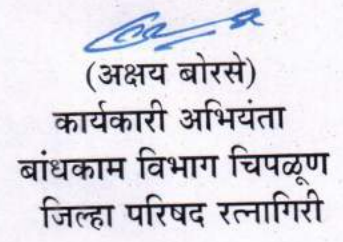 (अक्षय बोरसे)
कार्यकारी अभियंता
बांधकाम विभाग चिपळूण
जिल्हा परिषद रत्नागिरी